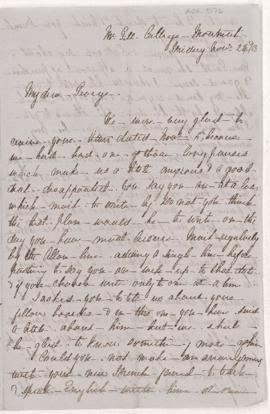 McGill College - Montreal
Friday Nov. 28
My dear George,
We were very glad to
receive your letter dated Nov. 5 because
we had had one of those long pauses
which make us a little anxious & a good
deal disappointed. You say you are at a loss
which mail to write by. Do not you think
the best plan would be to write on the
day you have most leisure. Mail regularly
by the Allan line adding a single line before
posting to say you are well up to that date.
if you choose write only to one at a time.
I asked you to tell us about your
fellow boarder & in this one you have said
a little about him but we shall
be glad to know something more
Could you not make an arrangement
with your new French friend to
speak English with him